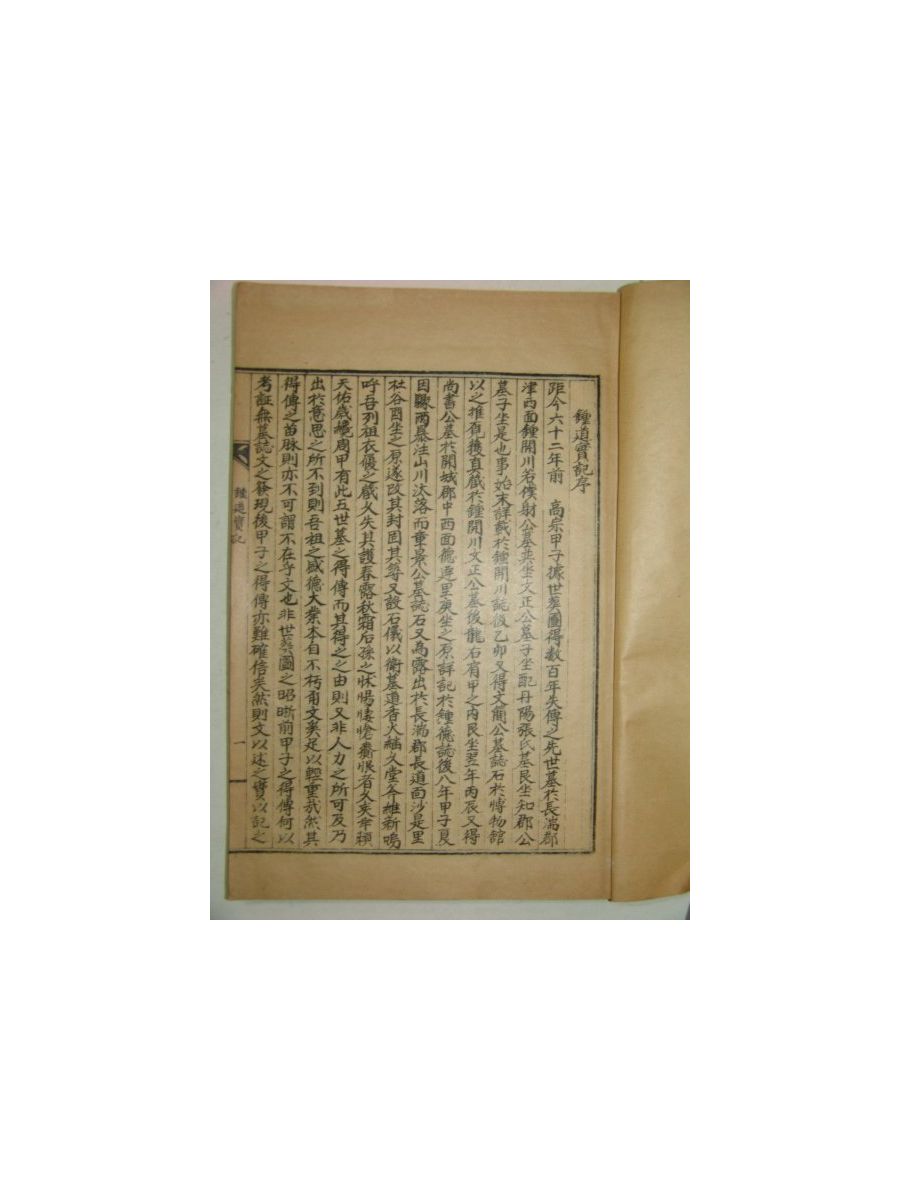 鍾道實記序
距今六十二年前 高宗甲子據世葬圖得數百年失傳之先世墓於長湍郡
津西面鍾開川若僕射公墓巽坐文正公墓子坐配丹陽張氏墓艮坐知郡公
墓子坐是也事始末詳載於鍾開川誌後乙卯又得文簡公墓誌石於博物館
以之推覓後真藏於鍾開川文正公墓後龍右肩甲之內艮坐翌年丙辰又得
尚書公墓於開城郡中西面德達里庚坐之原詳記於鍾德誌後八年甲子夏
因驟雨暴注山川汰落而章景公墓誌石又為露出於長湍郡長道面沙是里
社谷酉坐之原遂改其封固其塋又設石儀以衛墓道香火緬久堂斧維新嗚
呼吾列祖衣履之藏久失其護春露秋霜后孫之怵惕悽愴齎恨者久矣幸賴
天佑歲纔周甲有此五世墓之得傳而其得之之由則又非人力之所可及乃
出於意思之所不到則吾祖之盛德大業本自不朽甭文奚足以輕重哉然其
得傳之苗脉則亦不可謂不在乎文也非世葬圖之昭晰前甲子之得傳何以
考証無墓誌文之發現後甲子之得傳亦難確信矣然則文以述之實以記之
鍾道實記
一